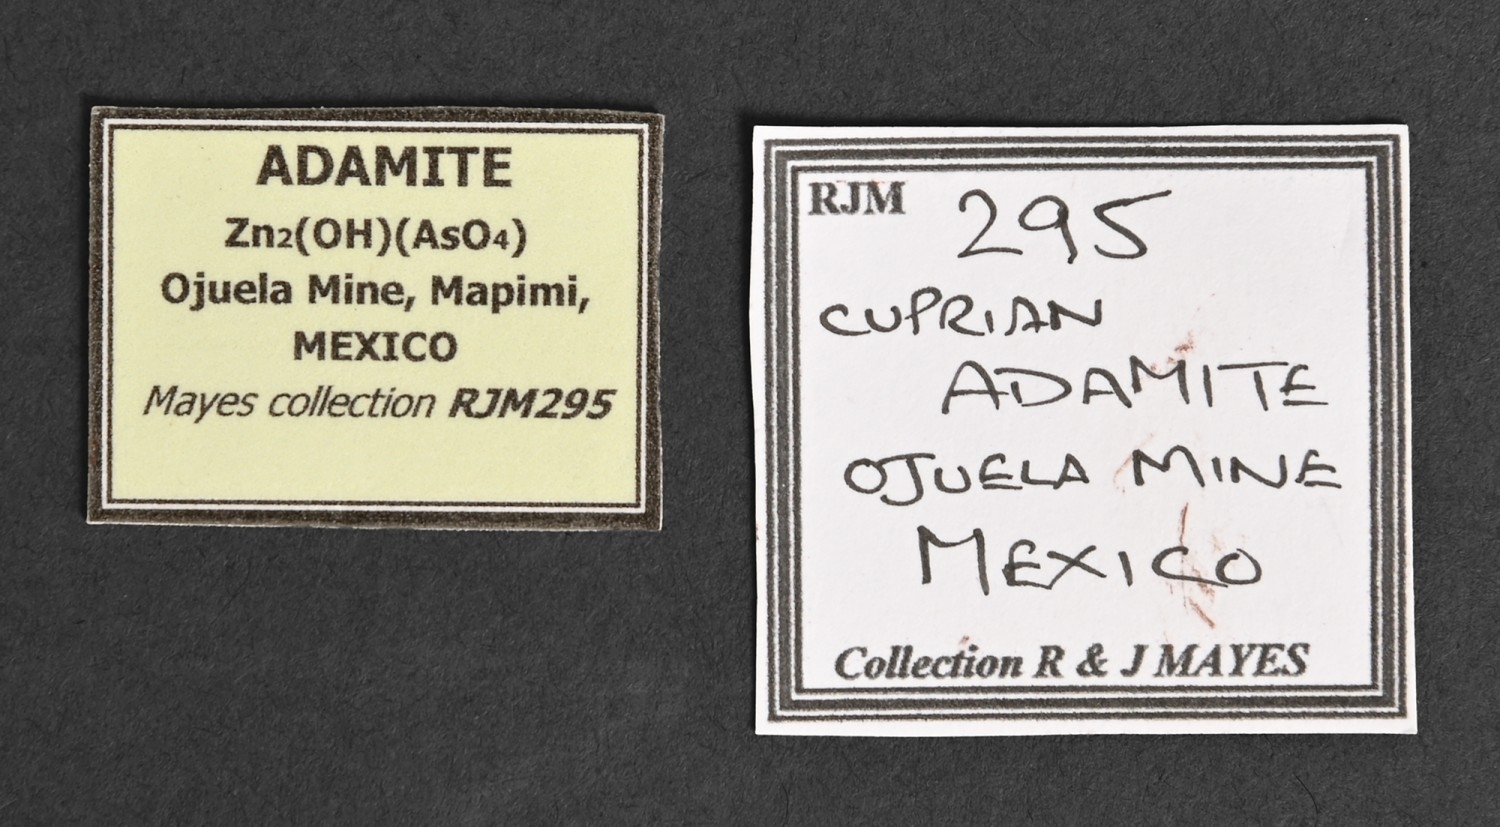 ADAMITE
Zn2(OH)(AsO4)
Ojuela Mine, Mapimi,
MEXICO
Mayes collection RJM295
RJM 295
CUPRIAN
ADAMITE
OJUELA MINE
MEXICO
Collection R & J MAYES